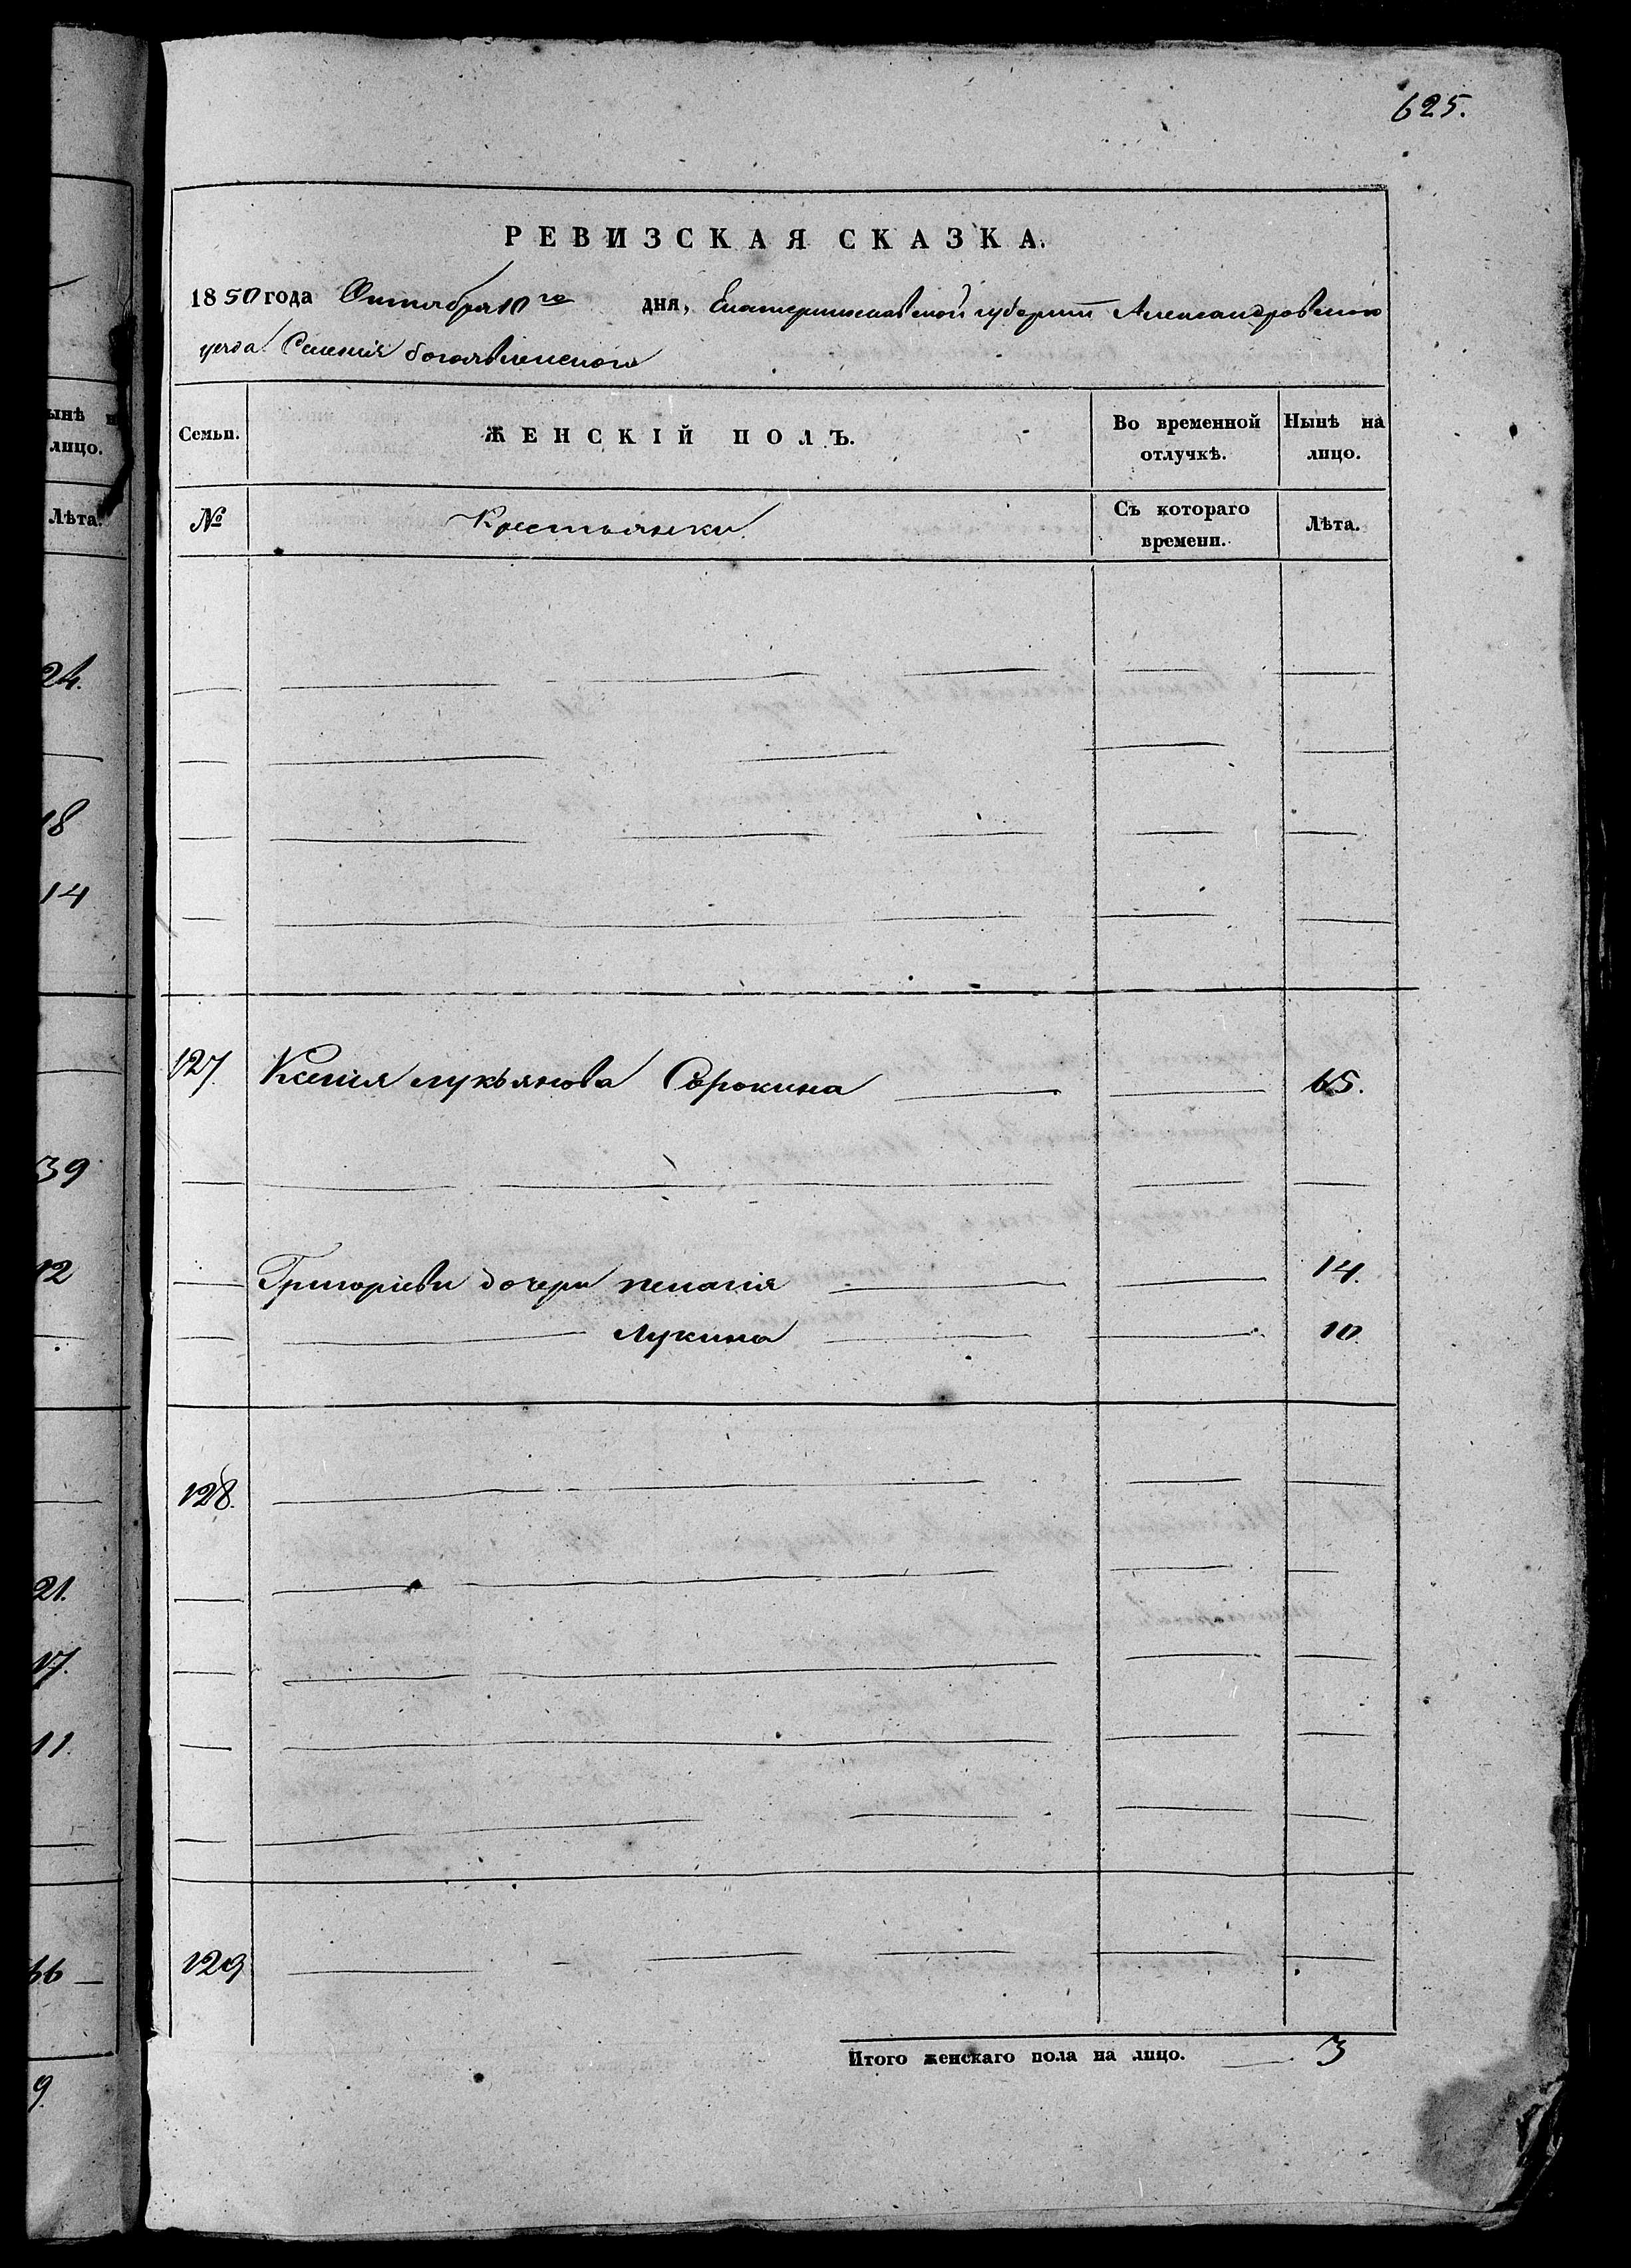 625.
РЕВИЗСКАЯ СКАЗКА.
1850 года Октября 10го дня, Екатеринославской губернии Александровского
уезда Селения богоявленского
Семьи. ЖЕНСКІЙ ПОЛЪ. Во временной отлучкѣ. Нынѣ на лицо.
№ Крестьянки. Съ котораго времени. Лѣта.
127. Ксения лукьянова Сорокина 65.
Григоріевы дочери пелагия 14.
Лукина 10.
128.
129
Итого женскаго пола на лицо. 3
ынѣ н
лицо.
Лѣта.
24.
18
14
39
12
21.
17.
11.
66
9.